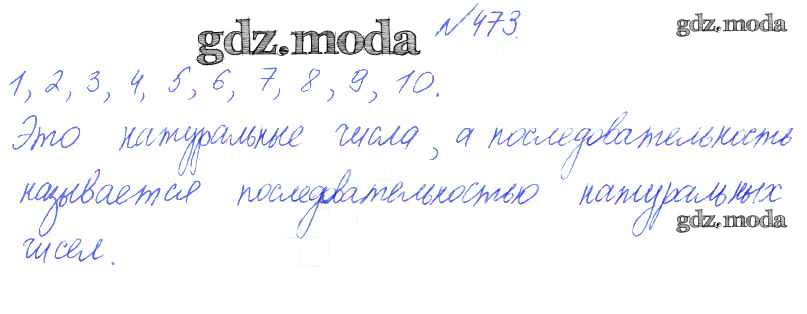 №473.
gdz.moda
gdz.moda
1, 2, 3, 4, 5, 6, 7, 8, 9, 10.
Это натуральные числа, а последовательность
называется последовательностью натуральных
gdz.moda
чисел.